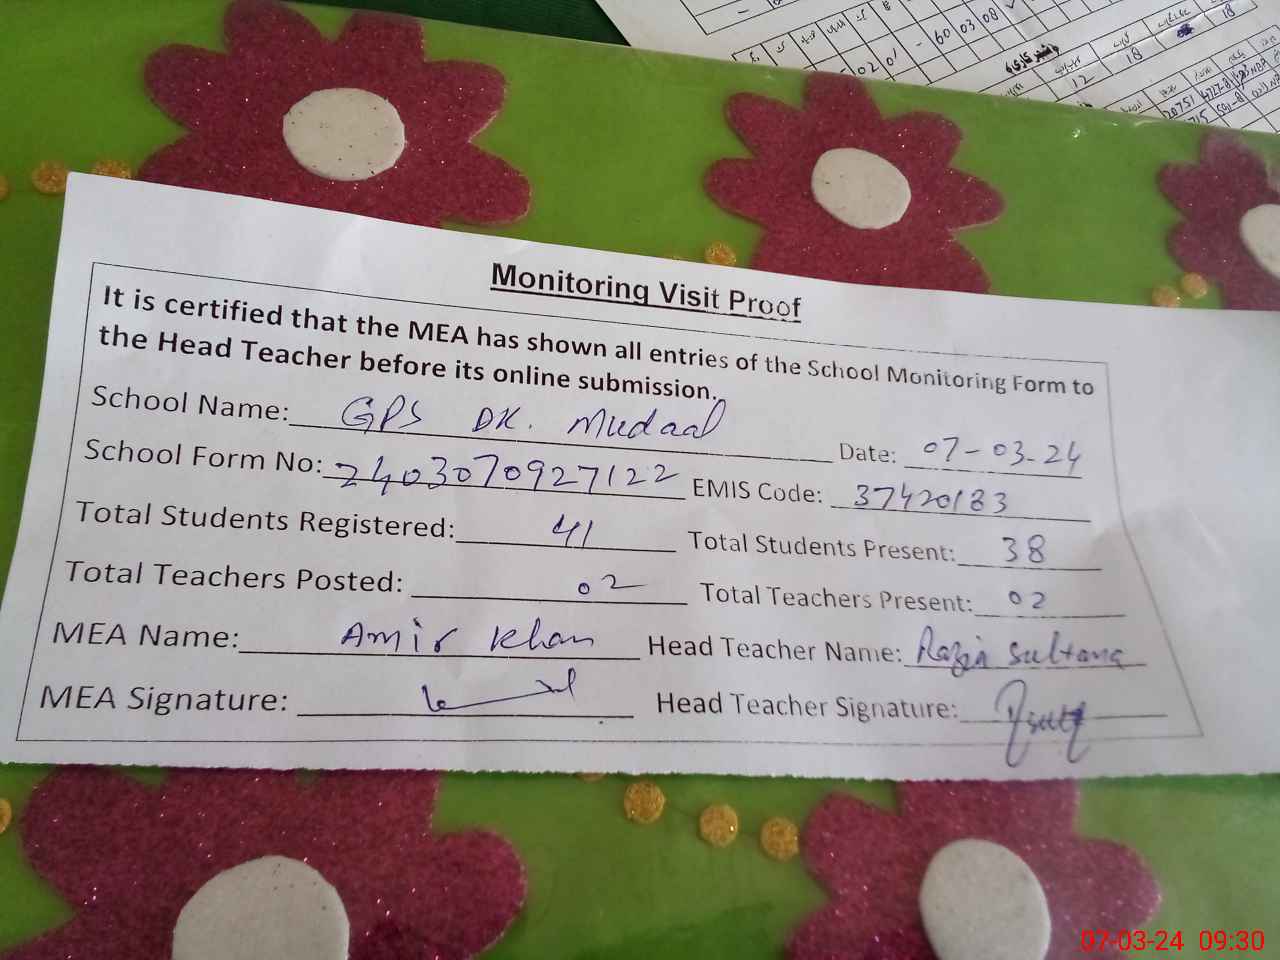 Monitoring Visit Proof
It is certified that the MEA has shown all entries of the School Monitoring Form to
the Head Teacher before its online submission.
School Name: GPS DK. Mudaal Date: 07-03-24
School Form No: 2403070927122 EMIS Code: 37420183
Total Students Registered: 41 Total Students Present: 38
Total Teachers Posted: 02 Total Teachers Present: 02
MEA Name: Amir Khan Head Teacher Name: Razia Sultana
MEA Signature: Head Teacher Signature:
07-03-24 09:30